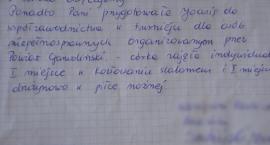 Ponadto Pani przygotowała Joasię do
współzawodnictwa w turnieju dla osób
niepełnosprawnych organizowanym przez
Powiat Garwoliński - córka zajęła indywidual
I miejsce w kozłowaniu slalomem i I miejs
drużynowo w piłce nożnej